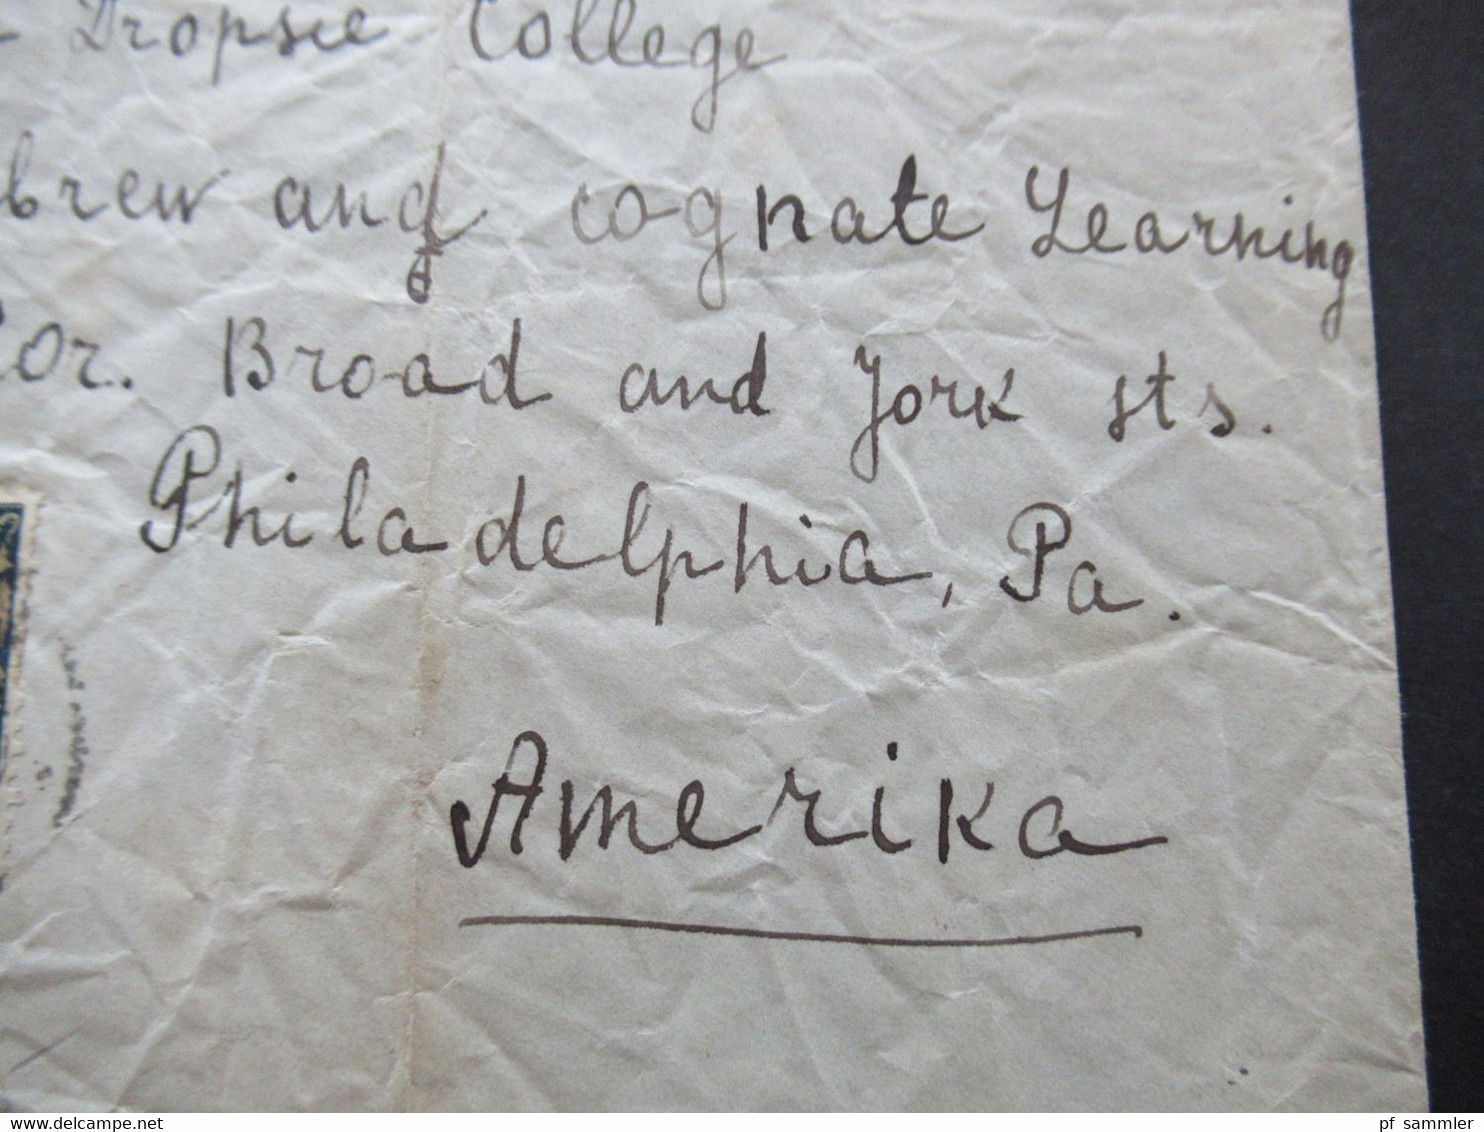 - Dropsie College
brew and cognate Learning
Cor. Broad and York sts.
Philadelphia, Pa.
Amerika
pf sammler